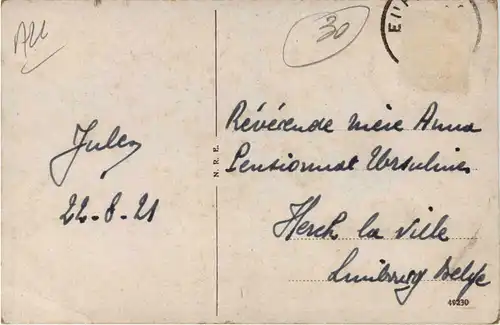 30
EU
Révérende mère Anna
Pensionnat Ursulines
Jules
22-8-21
Herck la ville
Limbourg Belge
N. R. E.
49230